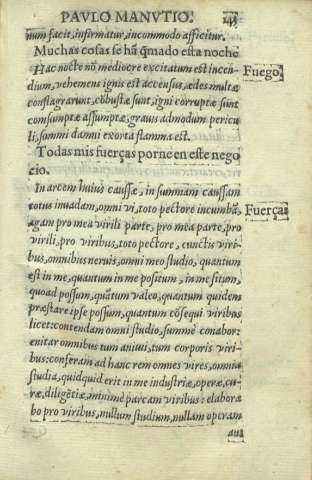 PAVLO MANVTIO.
num facit, infirmatur, incommodo afficitur.
Muchas cosas se hã q̃mado esta noche
Hac nocte nõ mediocre excitatum est incen-
dium, vehemens ignis est accensus, ædes multæ
conflagrarunt, cõbustæ sunt, igni corruptæ sunt
comsumptæ assumptæ, grauis admodum pericu
li, summi damni exorta flamma est.
Fuego.
Todas mis fuerças porne en este nego
cio.
In arcem huius caussæ, in summam caussam
totus inuadam, omni vi, toto pectore incumbã,
Fuerças
agam pro mea virili parte, pro mea parte, pro
virili, pro viribus, toto pectore, cunctis viri-
bus, omnibus neruis, omni meo studio, quantum
est in me, quantum in me positum, in me situm,
quoad possum, quãtum valeo, quantum quidem
præstare ipse possum, quantum cõsequi viribus
licet: contendam omni studio, summè conabor:
enitar omnibus tum animi, tum corporis viri-
bus: conferam ad hanc rem omnes vires, omnia
studia, quidquid erit in me industriæ, operæ, cu-
ræ, diligẽtiæ, minimè parcam viribus: elabora
bo pro viribus, nullum studium, nullam operam